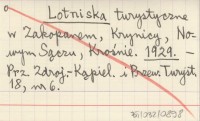 Lotniska turystyczne
w Zakopanem, Krynicy, No-
wym Sączu, Krośnie. 1929. –
Prz. Zdroj.-Kąpiel. i Przew. Turyst.
18, nr 6.